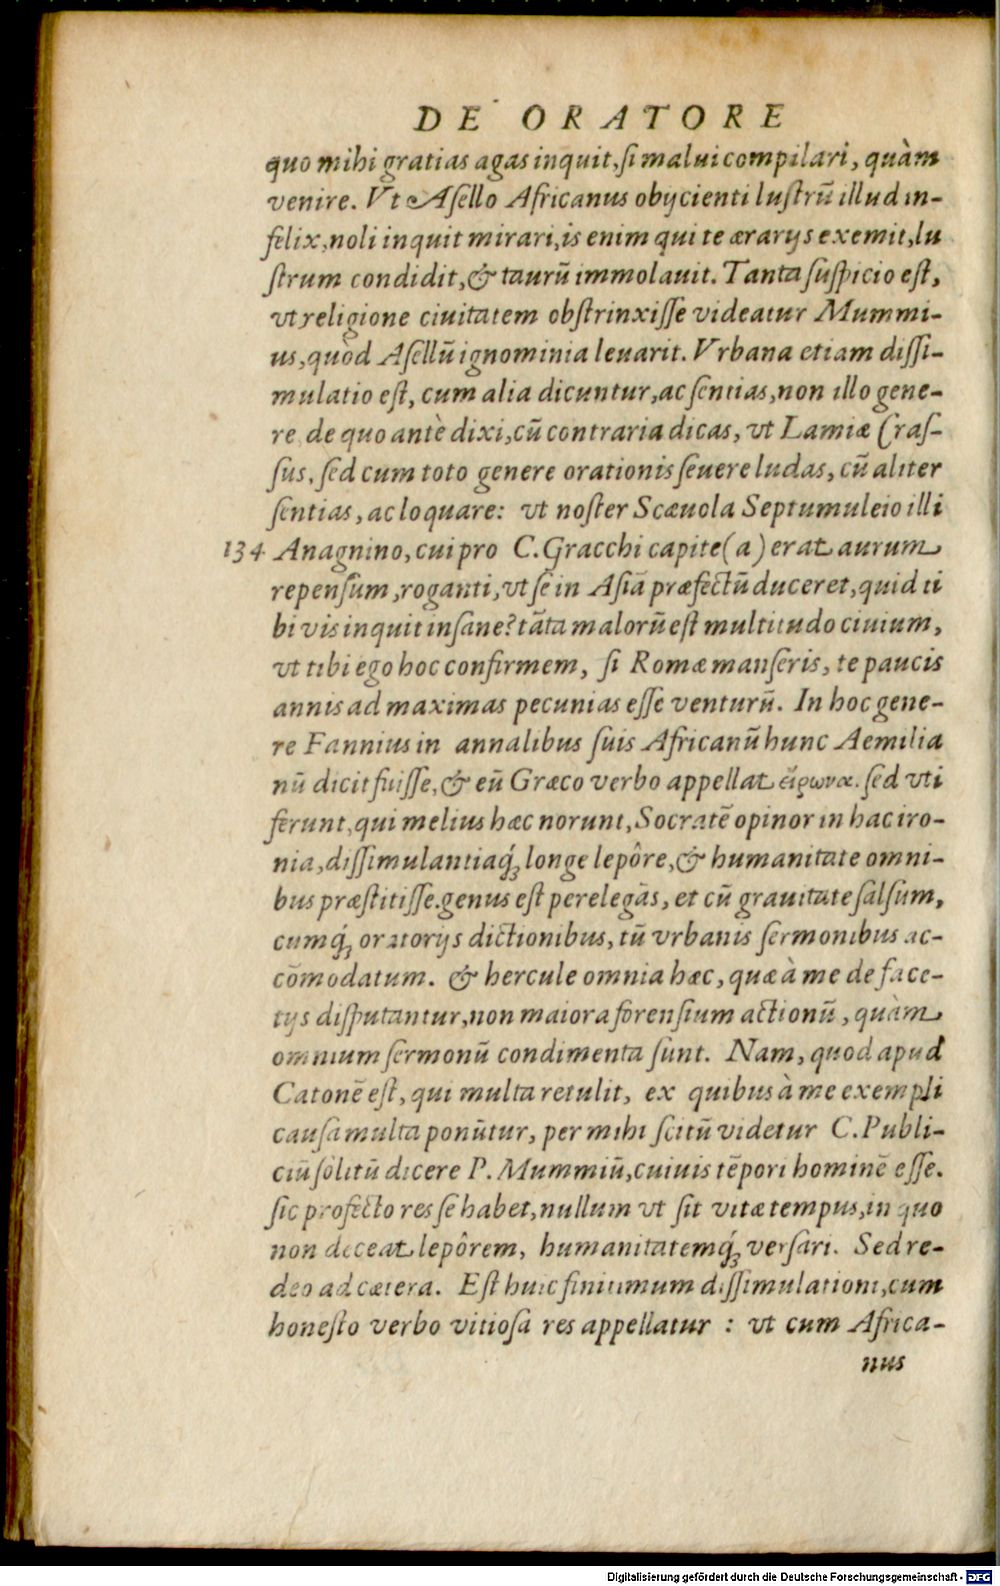 DE ORATORE
quo mihi gratias agas inquit, si malui compilari, quàm
venire. Vt Asello Africanus obijcienti lustrū illud in-
felix, noli inquit mirari, is enim qui te ærarijs exemit, lu
strum condidit, & taurū immolauit. Tanta suspicio est,
vt religione ciuitatem obstrinxisse videatur Mummi-
us, quòd Asellū ignominia leuarit. Vrbana etiam dissi-
mulatio est, cum alia dicuntur, ac sentias, non illo gene-
re de quo antè dixi, cū contraria dicas, vt Lamiæ Cras-
sus, sed cum toto genere orationis seuere ludas, cū aliter
sentias, ac loquare: vt noster Scæuola Septumuleio illi
134 Anagnino, cui pro C. Gracchi capite (a) erat aurum
repensum, roganti, vt se in Asiā præfectū duceret, quid ti
bi vis inquit insane? tāta malorū est multitudo ciuium,
vt tibi ego hoc confirmem, si Romæ manseris, te paucis
annis ad maximas pecunias esse venturū. In hoc gene-
re Fannius in annalibus suis Africanū hunc Aemilia
nū dicit fuisse, & eū Græco verbo appellat εἴρωνα. sed vti
ferunt, qui melius hæc norunt, Socratē opinor in hac iro-
nia, dissimulantiaq́ꝫ longe lepôre, & humanitate omni-
bus præstitisse. genus est perelegās, et cū grauitate salsum,
cumq́ꝫ oratorijs dictionibus, tū vrbanis sermonibus ac-
cōmodatum. & hercule omnia hæc, quæ à me de face-
tijs disputantur, non maiora forensium actionū, quàm
omnium sermonū condimenta sunt. Nam, quod apud
Catonē est, qui multa retulit, ex quibus à me exempli
causa multa ponūtur, per mihi scitū videtur C. Publi-
ciū sòlitū dicere P. Mummiū, cuiuis tēpori hominē esse.
sic profecto res se habet, nullum vt sit vitæ tempus, in quo
non deceat lepôrem, humanitatemq́ꝫ versari. Sed re-
deo ad cætera. Est huic finitimum dissimulationi, cum
honesto verbo vitiosa res appellatur : vt cum Africa-
nus
Digitalisierung gefördert durch die Deutsche Forschungsgemeinschaft - DFG